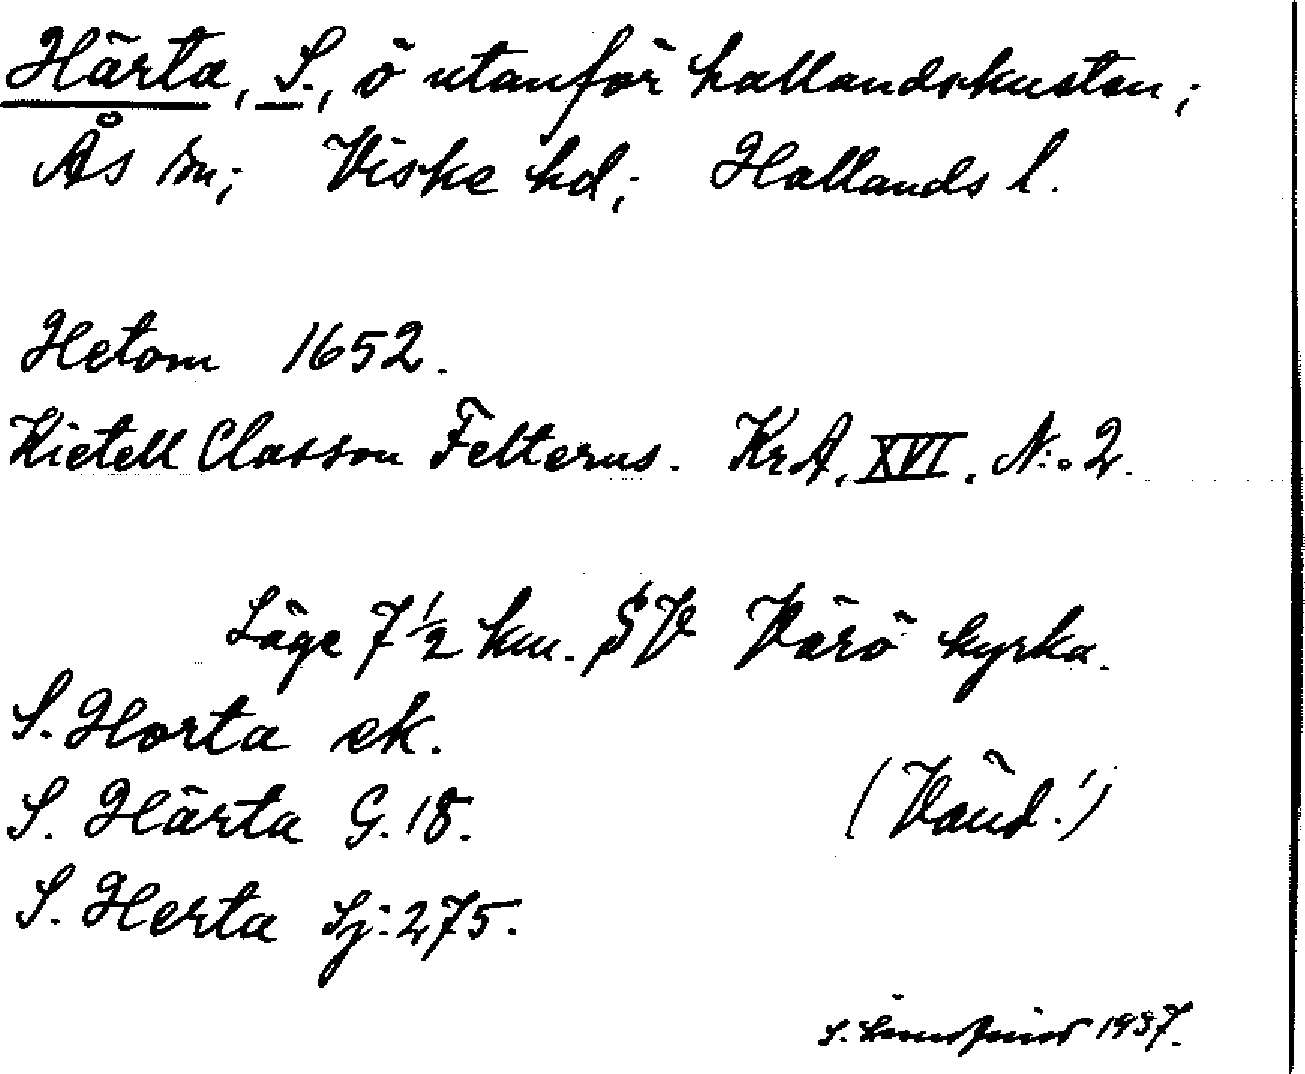 Härta, S., ö utanför hallandskusten;
Ås sn; Viske hd; Hallands l.
Hetom 1652.
Kietell Classon Felterus. KrA, XVI, N:o 2.
Läge 7 1/2 km. SV Värö kyrka.
S. Horta ek.
S. Härta G. 18.
(Vänd!)
S. Herta Sj: 275.
S. 1937.